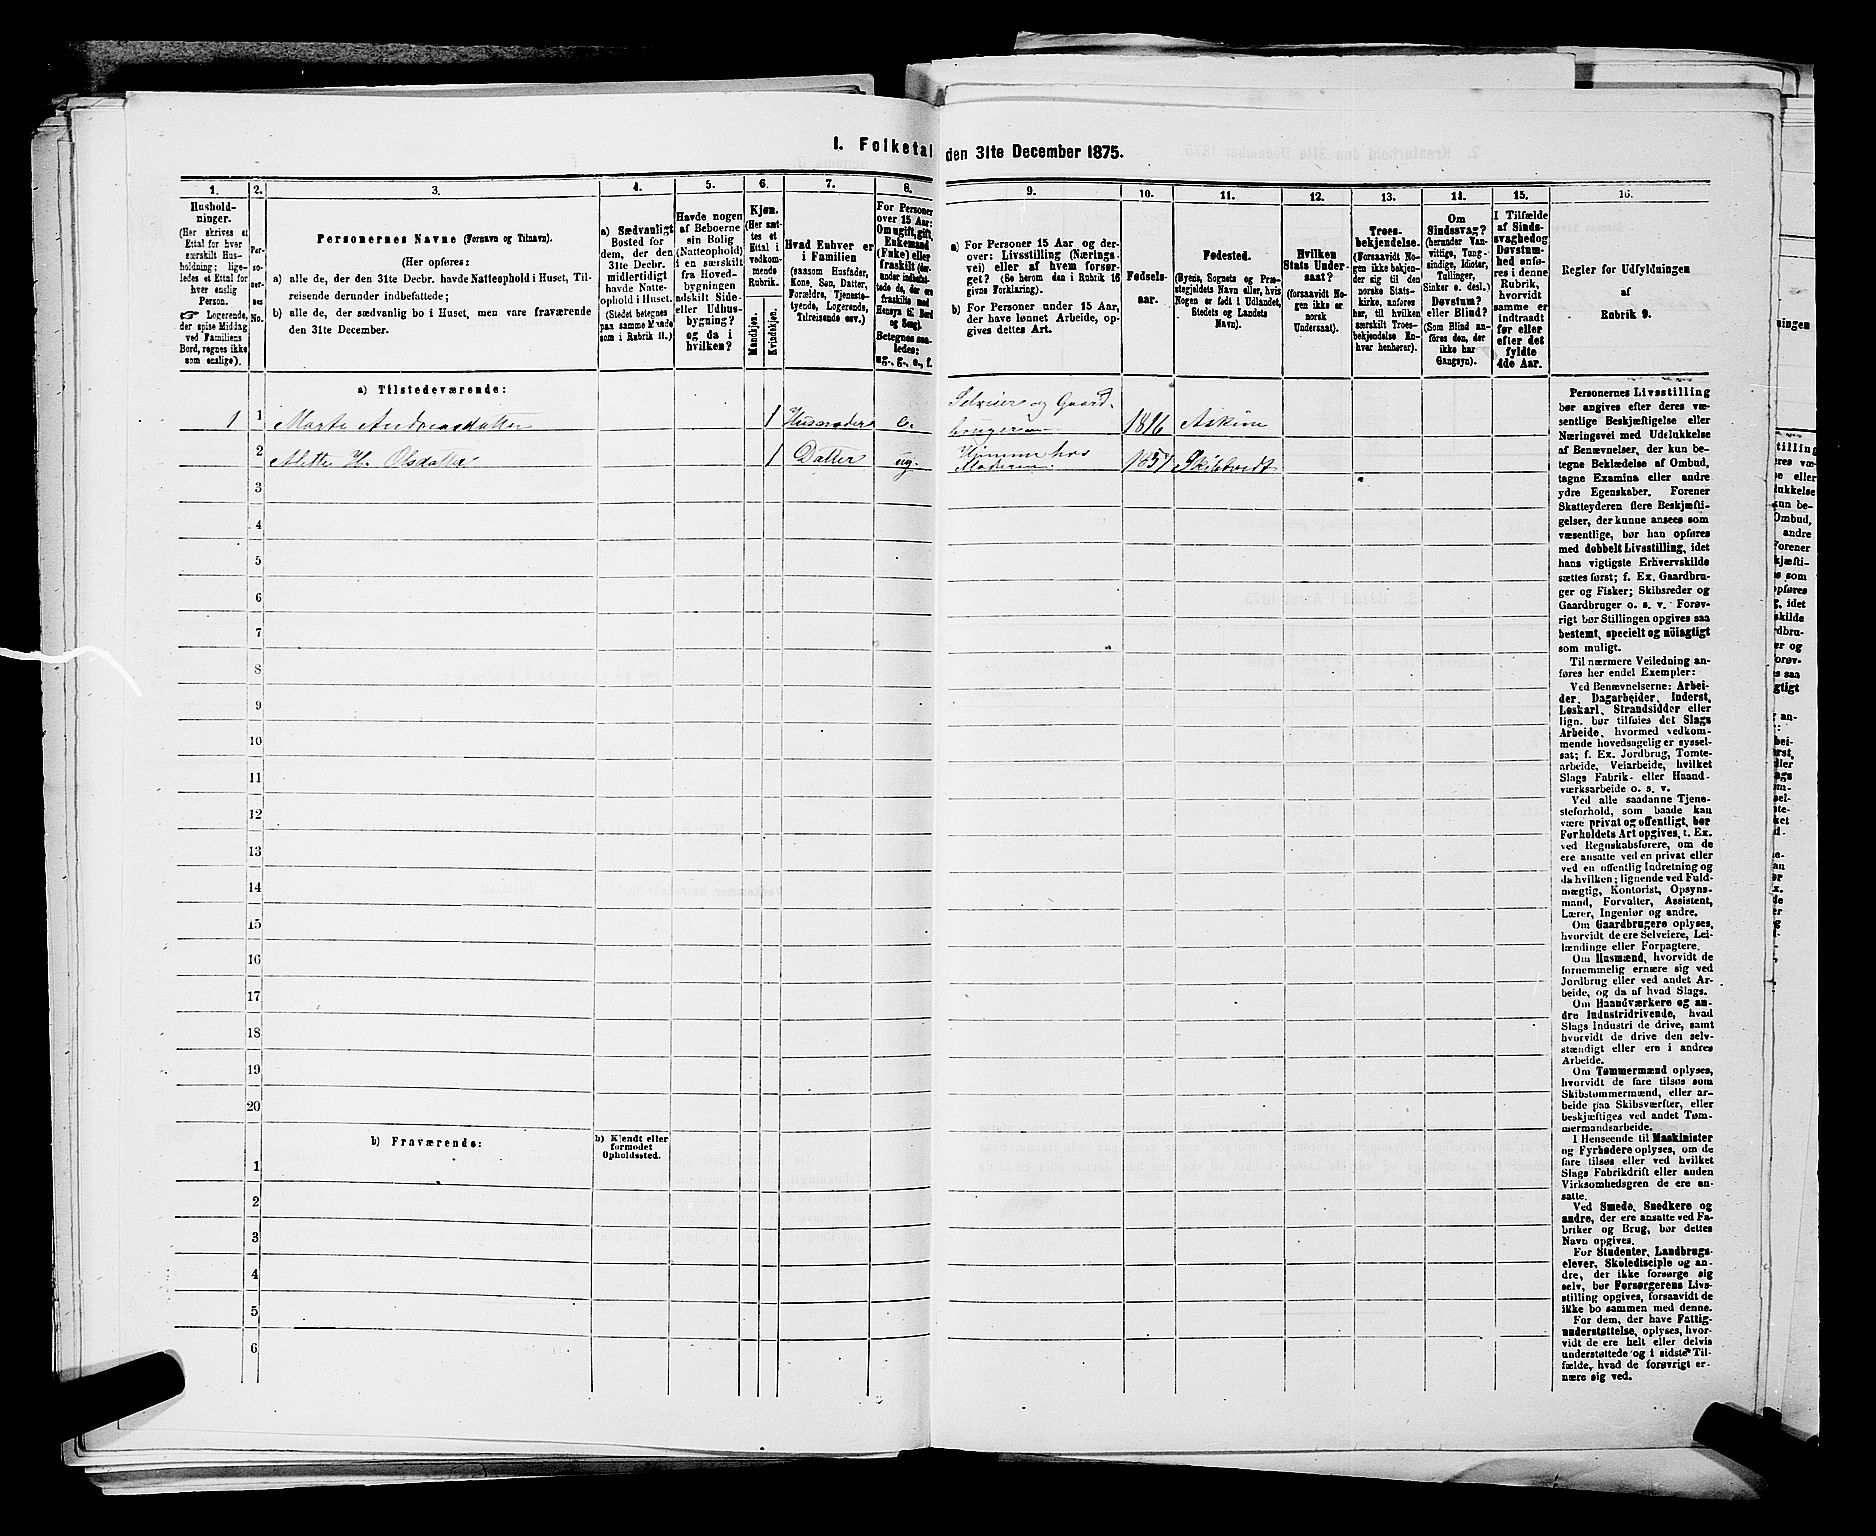 1. Folketal den 31te December 1875.
1. 2. 3. 4. 5. 6. 7. 8. 9. 10. 11. 12. 13. 14. 15. 16.
Hushold-
ninger.
(Her skrives et
Ettal for hver
særskilt Hus-
holdning; lige-
ledes et Ettal for
hver enslig
Person.
☞ Logerende,
der spise Middag
ved Familiens
Bord, regnes ikke
som enslige).
Per-
so-
ner-
nes
No.
Personernes Navne (Fornavn og Tilnavn).
(Her opføres:
a) alle de, der den 31te Decbr. havde Natteophold i Huset, Til-
reisende derunder indbefattede;
b) alle de, der sædvanlig bo i Huset, men vare fraværende
den 31te December.
a) Sædvanligt
Bosted for
dem, der den
31te Decbr.
midlertidigt
havde Natte-
ophold i Huset.
(Stedet betegnes
paa samme Maade
som i Rubrik 11.)
Havde nogen
af Beboerne
sin Bolig
(Natteophold)
i en særskilt
fra Hoved-
bygningen
adskilt Side-
eller Udhus-
bygning?
og da i
hvilken?
Kjøn.
(Her sæt-
tes et
Ettal i
vedkom-
mende
Rubrik.
Mandkjøn.
Kvindekjøn.
Hvad Enhver er
i Familien
(saasom Husfader,
Kone, Søn, Datter,
Forældre, Tjeneste-
tyende, Logerende,
Tilreisende osv.)
For Personer
over 15 Aar:
Om ugift, gift,
Enkemand
(Enke) eller
fraskilt (der-
under indbefat-
tede de, der ere
fraskilte med
Hensyn til Bord
og Seng).
Betegnes saa-
ledes:
ug., g., e., f.
a) For Personer 15 Aar og der-
over: Livsstilling (Nærings-
vei) eller af hvem forsør-
get? (Se herom den i Rubrik 16
givne Forklaring).
b) For Personer under 15 Aar,
der have lønnet Arbeide, op-
gives dettes Art.
Fødsels-
aar.
Fødested.
(Byens, Sognets og Præ-
stegjeldets Navn eller, hvis
Nogen er født i Udlandet,
Stedets og Landets
Navn).
Hvilken
Stats Under-
saat?
(forsaavidt No-
gen ikke er
norsk
Undersaat).
Troes-
bekjendelse.
(Forsaavidt No-
gen ikke bekjen-
der sig til den
norske Stats-
kirke, anføres
her, til hvilken
særskilt Troes-
bekjendelse En-
hver henhører).
Om
Sindssvag?
(herunder Van-
vittige, Tung-
sindige, Idioter,
Tullinger,
Sinker o. desl.)
Døvstum?
eller Blind?
(Som Blind an-
føres den, der
ikke har
Gangsyn).
I Tilfælde
af Sinds-
svaghed og
Døvstum-
hed anfø-
res i denne
Rubrik,
hvorvidt
samme er
indtraadt
før eller
efter det
fyldte
4de Aar.
Regler for Udfyldningen
af
Rubrik 9.
a) Tilstedeværende:
1 1 Marte Andreasdatter 1 Husmoder e. Selveier og Gaard- 1816 Askim
2 Alette H. Olsdatter 1 Datter ug. Hjemme hos Moderen 1857
3
4
5
6
7
8
9
10
11
12
13
14
15
16
17
18
19
20
b) Fraværende:
b) Kjendt eller
formodet
Opholdssted.
1
2
3
4
5
6
Personernes Livsstilling
bør angives efter deres væ-
sentlige Beskjæftigelse eller
Næringsvei med Udelukkelse
af Benævnelser, der kun be-
tegne Beklædelse af Ombud,
tagne Examina eller andre
ydre Egenskaber. Forener
Skatteyderen flere Beskjæfti-
gelser, der kunne ansees som
væsentlige, bør han opføres
med dobbelt Livsstilling, idet
hans vigtigste Erhvervskilde
sættes først; f. Ex. Gaardbru-
ger og Fisker; Skibsreder og
Gaardbruger o. s. v. Forøv-
rigt bør Stillingen opgives saa
bestemt, specielt og nöiagtigt
som muligt.
Til nærmere Veiledning an-
føres her endel Exempler:
Ved Benævnelserne: Arbei-
der, Dagarbeider, Inderst,
Løskarl, Strandsidder eller
lign. bør tilføies det Slags
Arbeide, hvormed vedkom-
mende hovedsagelig er syssel-
sat; f. Ex. Jordbrug, Tomte-
arbeide, Veiarbeide, hvilket
Slags Fabrik- eller Haand-
værksarbeide o. s. v.
Ved alle saadanne Tjene-
steforhold, som baade kan
være privat og offentligt, bør
Forholdets Art opgives, t. Ex.
ved Regnskabsførere, om de
ere ansatte ved en privat eller
ved en offentlig Indretning og
da hvilken; lignende ved Fuld-
mægtig, Kontorist, Opsyns-
mand, Forvalter, Assistent,
Lærer, Ingeniør og andre.
Om Gaardbrugere oplyses,
hvorvidt de ere Selveiere, Lei-
lændinge eller Forpagtere.
Om Husmænd, hvorvidt de
fornemmelig ernære sig ved
Jordbrug eller ved andet Ar-
beide, og da af hvad Slags.
Om Haandværkere og an-
dre Industridrivende, hvad
Slags Industri de drive, samt
hvorvidt de drive den selv-
stændigt eller ere i andres
Arbeide.
Om Tømmermænd oplyses,
hvorvidt de fare tilsøs som
Skibstømmermænd, eller ar-
beide paa Skibsværfter, eller
beskjæftiges ved andet Tøm-
mermandsarbeide.
I Henseende til Maskinister
og Fyrbødere oplyses, om de
fare tilsøs eller ved hvilket
Slags Fabrikdrift eller anden
Virksomhedsgren de ere an-
satte.
Ved Smede, Snedkere og
andre, der ere ansatte ved Fa-
briker og Brug, bør dettes
Navn opgives.
For Studenter, Landbrugs-
elever, Skoledisciple og an-
dre, der ikke forsørge sig
selv, bør Forsørgerens Livs-
stilling opgives, forsaavidt de
ikke bo sammen med denne.
For dem, der have Fattig-
understøttelse, oplyses, hvor-
vidt de ere helt eller delvis
understøttede og i sidste Til-
fælde, hvad de forøvrigt er-
nære sig ved.